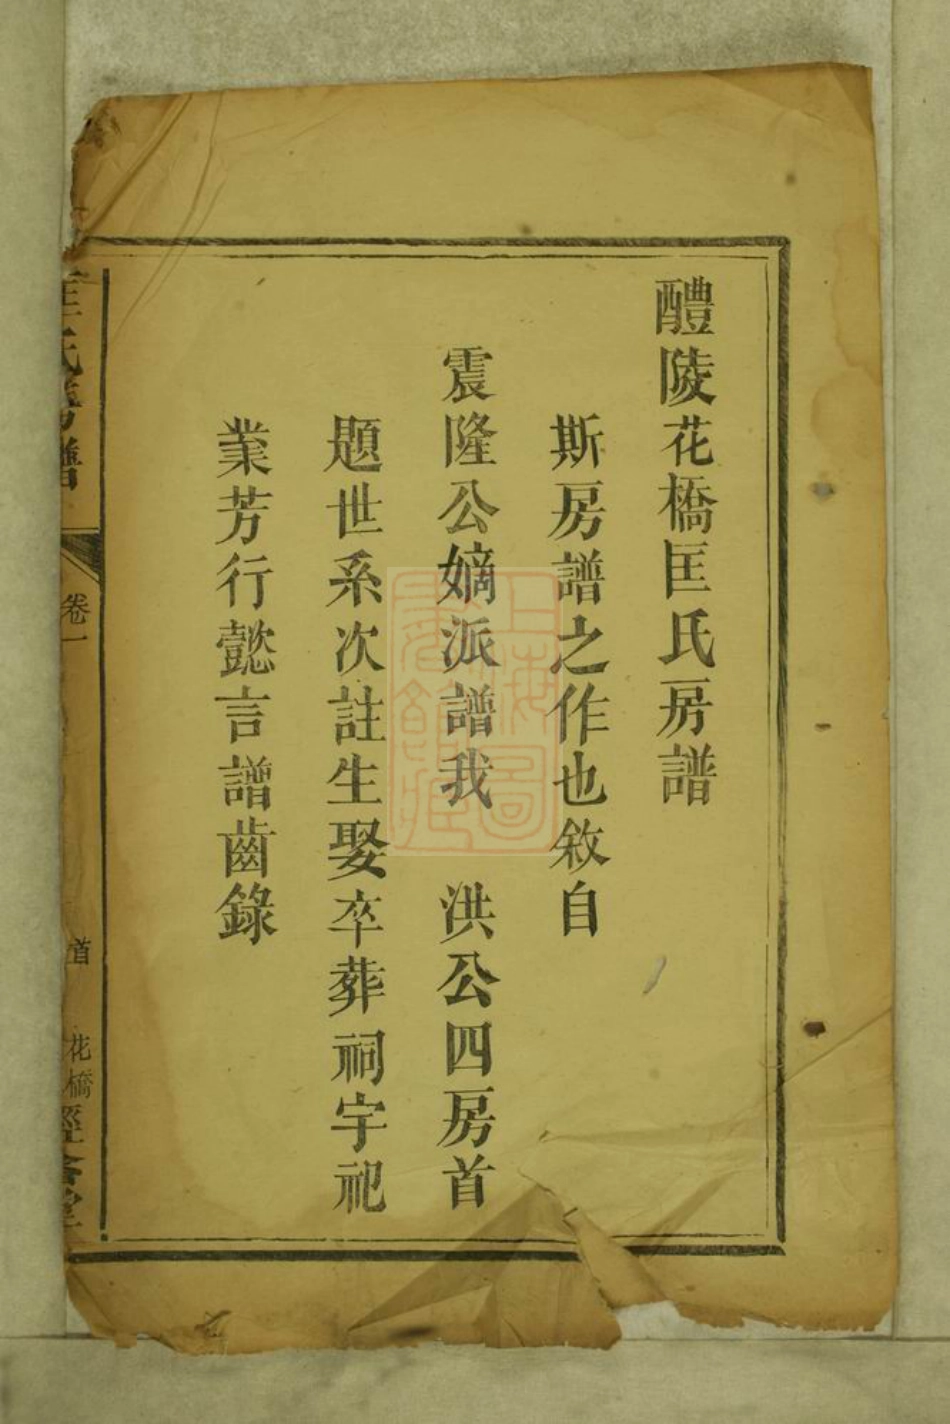 醴陵花橋匡氏房譜
斯房譜之作也敘自
震隆公嫡派譜我　洪公四房首
題世系次註生娶卒葬祠宇祀
業芳行懿言譜齒錄
匡氏房譜
卷一
首
花橋
經畬堂
上海圖書館藏